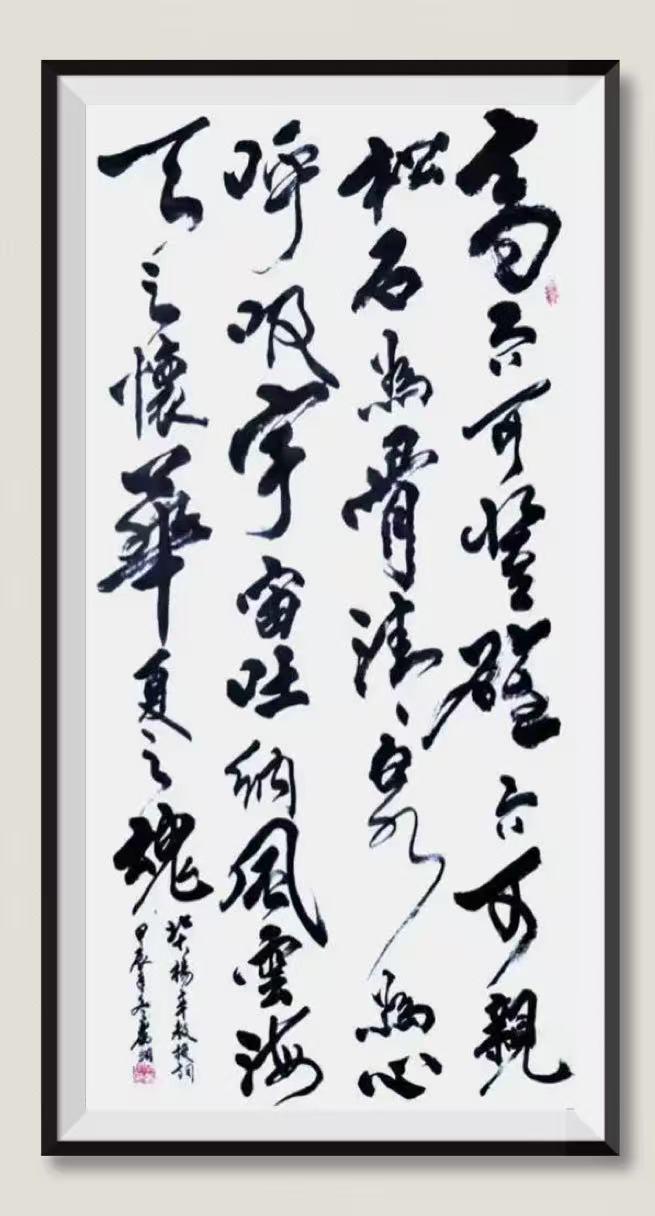 高而可登雄而可親
松石為骨清泉為心
呼吸宇宙吐納風雲海
天之懷華夏之魂
北大楊辛教授詞
甲辰年冬